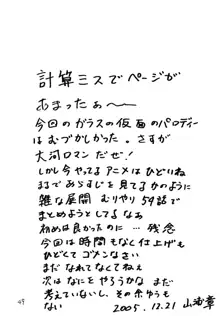 計算ミスでページが
あまったぁ〜
今回のガラスの仮面のパロディー
はむづかしかった。さすが
大河ロマンだぜ!
しかし今やってるアニメはひどいね
まるであらすじを見てるかのように
雑な展開 むりやり54話で
まとめようとしてるな
初めは良かったのに… 残念
今回は時間もなく仕上げも
ひどくてゴメンなさい
まだなれてなくてねぇ
次はなにをやろうかな まだ
考えていないし、その余ゆうも
ない 2005.12.21
49